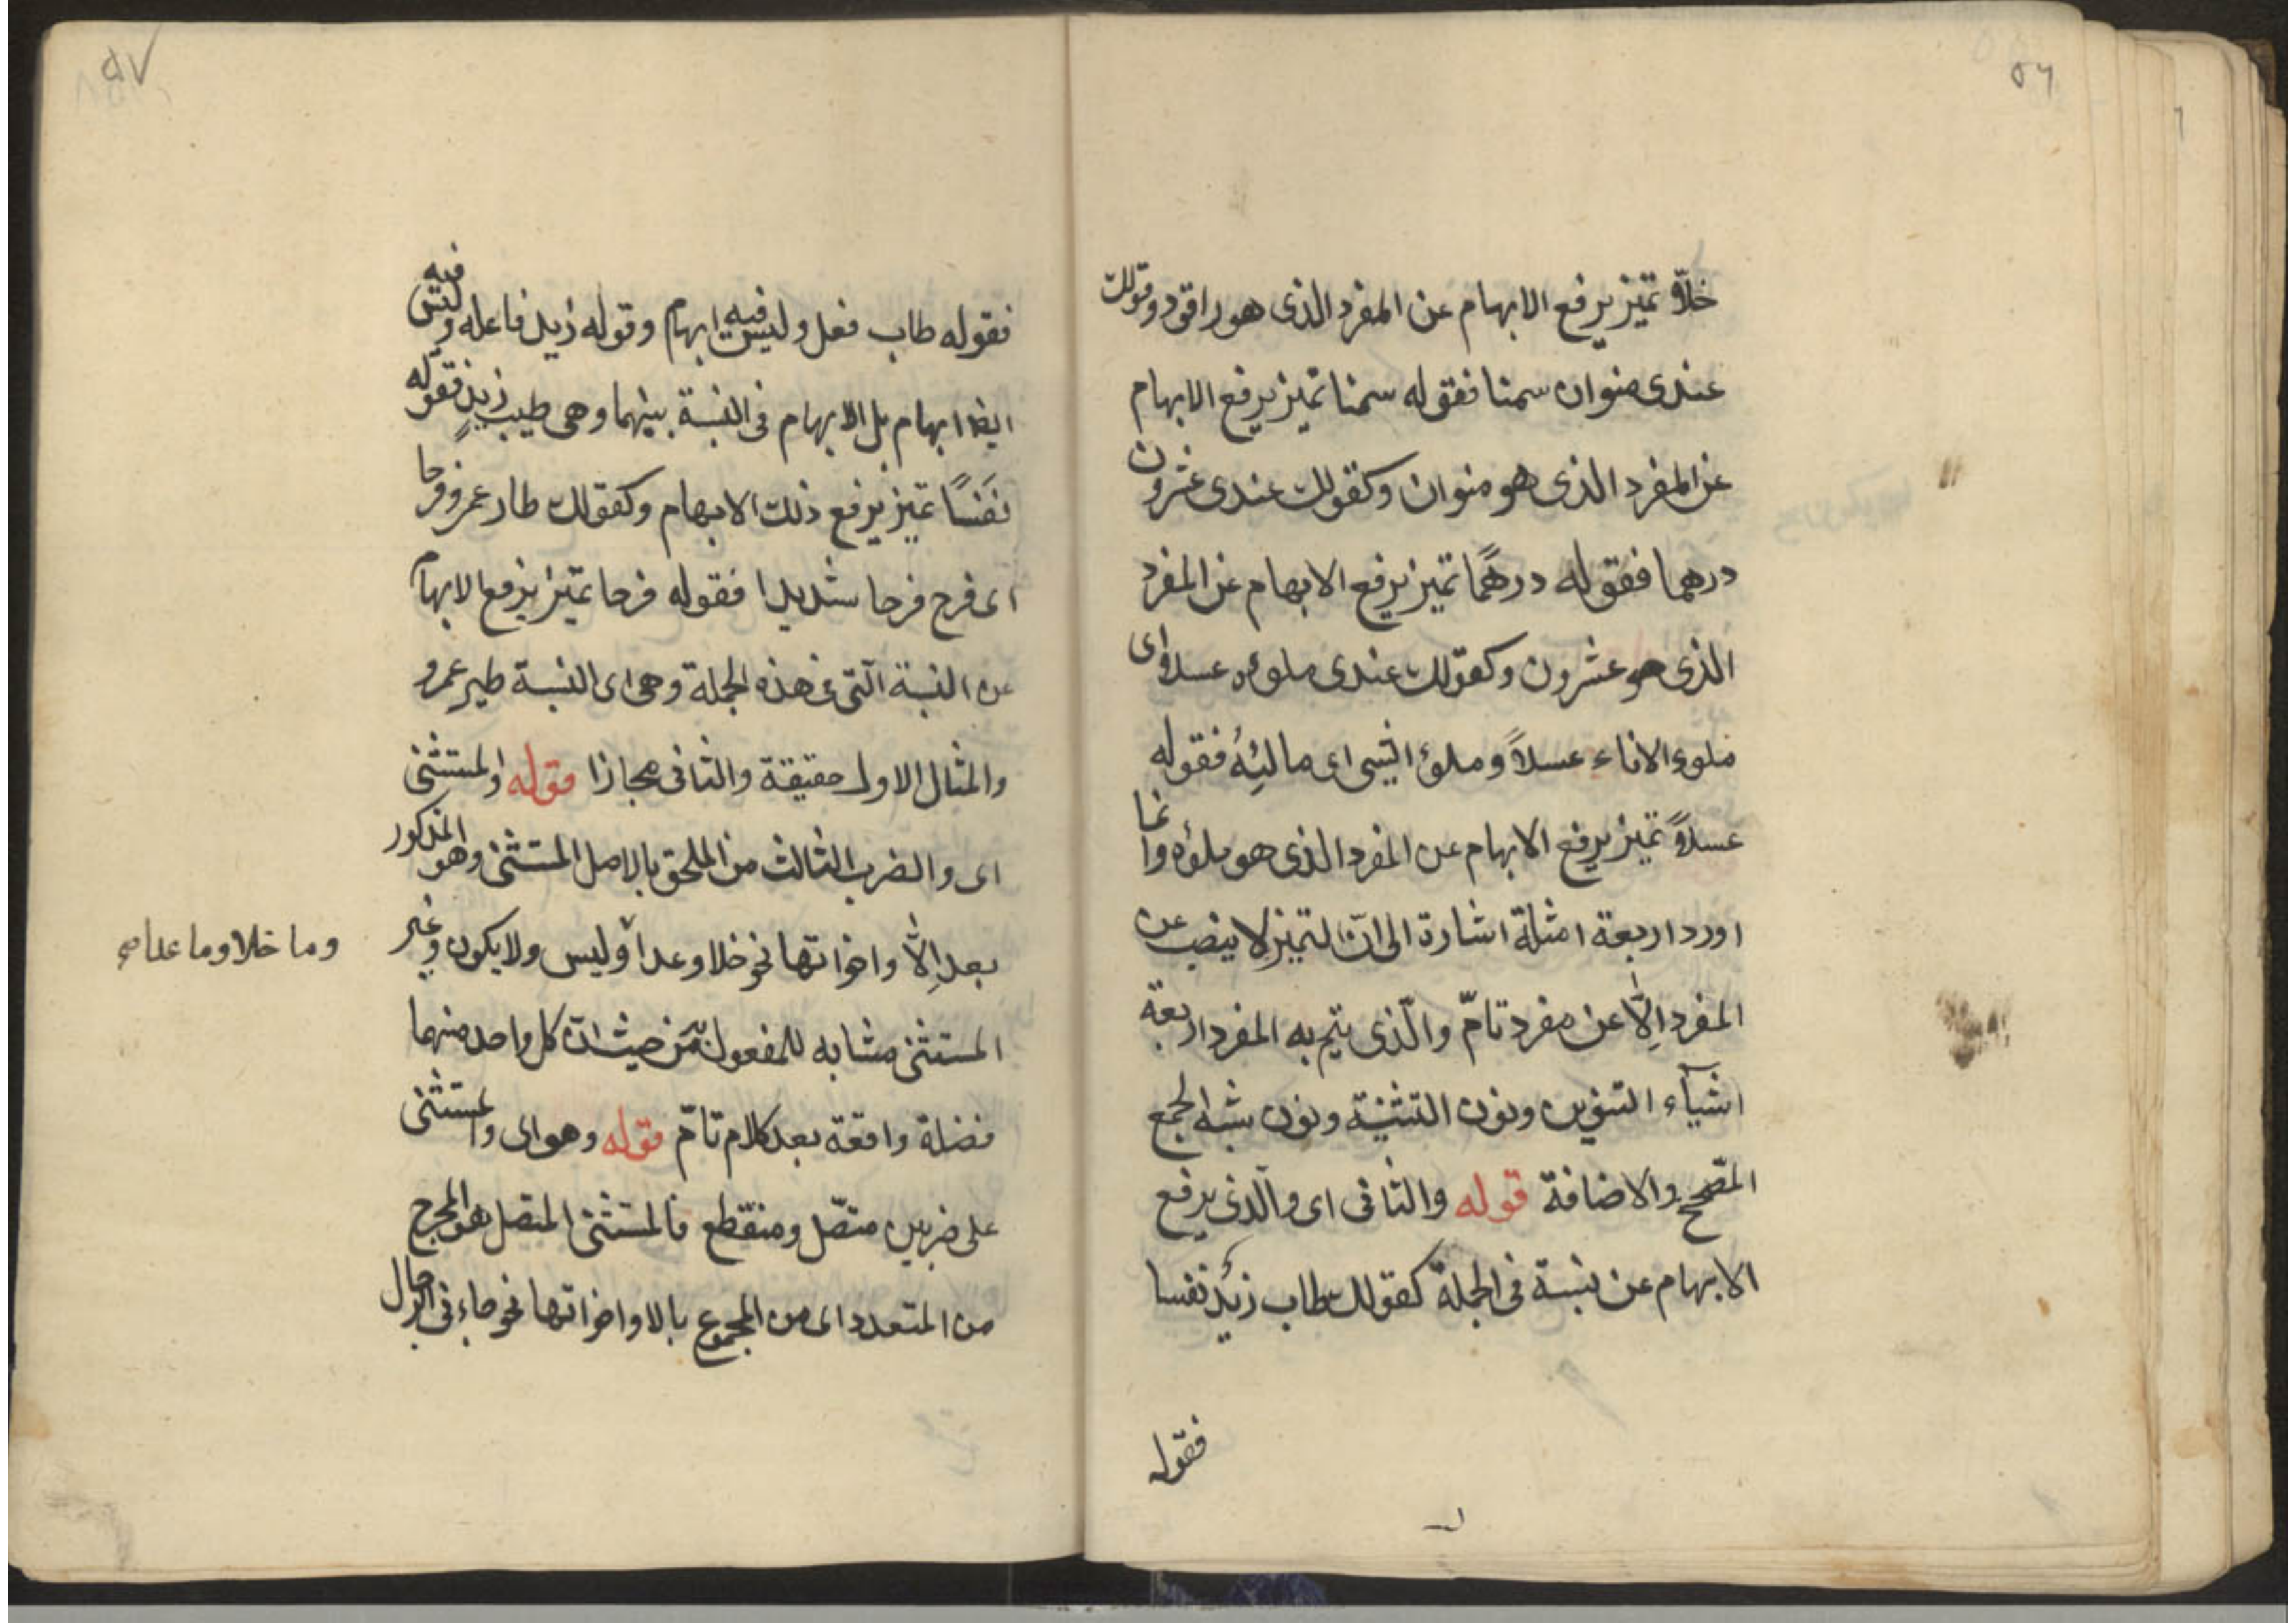 ٥٦
خلّاً تميز يرفع الابهام عن المفرد الذى هو راقود وقولك
عندى منوان سمنا فقوله سمنا تميز يرفع الابهام
عن المفرد الذى هو منوان وكقولك عندى عشرون
درهما فقوله درهمًا تميز يرفع الابهام عن المفرد
الذى هو عشرون وكقولك عندى ملوءه عسلا اى
ملوء الاناء عسلاً وملؤ الشى اى ماليه فقوله
عسلاً تميز يرفع الابهام عن المفرد الذى هو ملوءه وانما
اورد اربعة امثلة اشارة الى انّ التميز لا ينصب عن
المفرد اِلّا عن مفرد تامّ والّذى يتم به المفرد اربعة
اشيآء التنوين ونون التثنية ونون شبه الجمع
المصّحح والاضافة قوله والثانى اى والّذى يرفع
الابهام عن نسبة فى الجملة كقولك طاب زيد نفسا
فقوله
٥٧
فقوله طاب فعل وليس فيه ابهام وقوله زيد فاعله وليس فيه
ايضا ابهام بل الابهام فى النسبة بينهما وهى طيب زيدٍ فقوله
نفسًا تميز يرفع ذلك الابهام وكقولك طار عمرو فرحا
اى فرح فرحا شديدا فقوله فرحا تميز يرفع الابهام
عن النسبة الّتى فى هذه الجملة وهى اى النسبة طير عمرو
والمثال الاول حقيقة والثانى مجازا قوله والمستثنى
اى والضرب الثالث من الملحق بالاصل المستثنى وهو المذكور
بعد اِلّا واخواتها نحو خلا وعدا وليس ولا يكون وغير
وما خلا وما عدا صح
المستثنى مشابه للمفعول به من حيث انّ كل واحد منهما
فضلة واقعة بعد كلام تامّ قوله وهو اى والمستثنى
على ضربين متصّل ومنقطع فالمستثنى المتصل هو المخرج
من المتعدد اى من المجموع بالا واخواتها نحو جاءنى الرجال